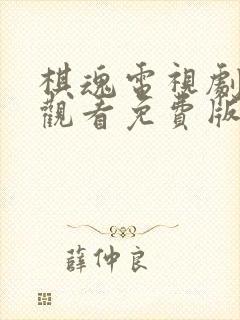 棋魂電視劇
觀看免費版
薛仲良